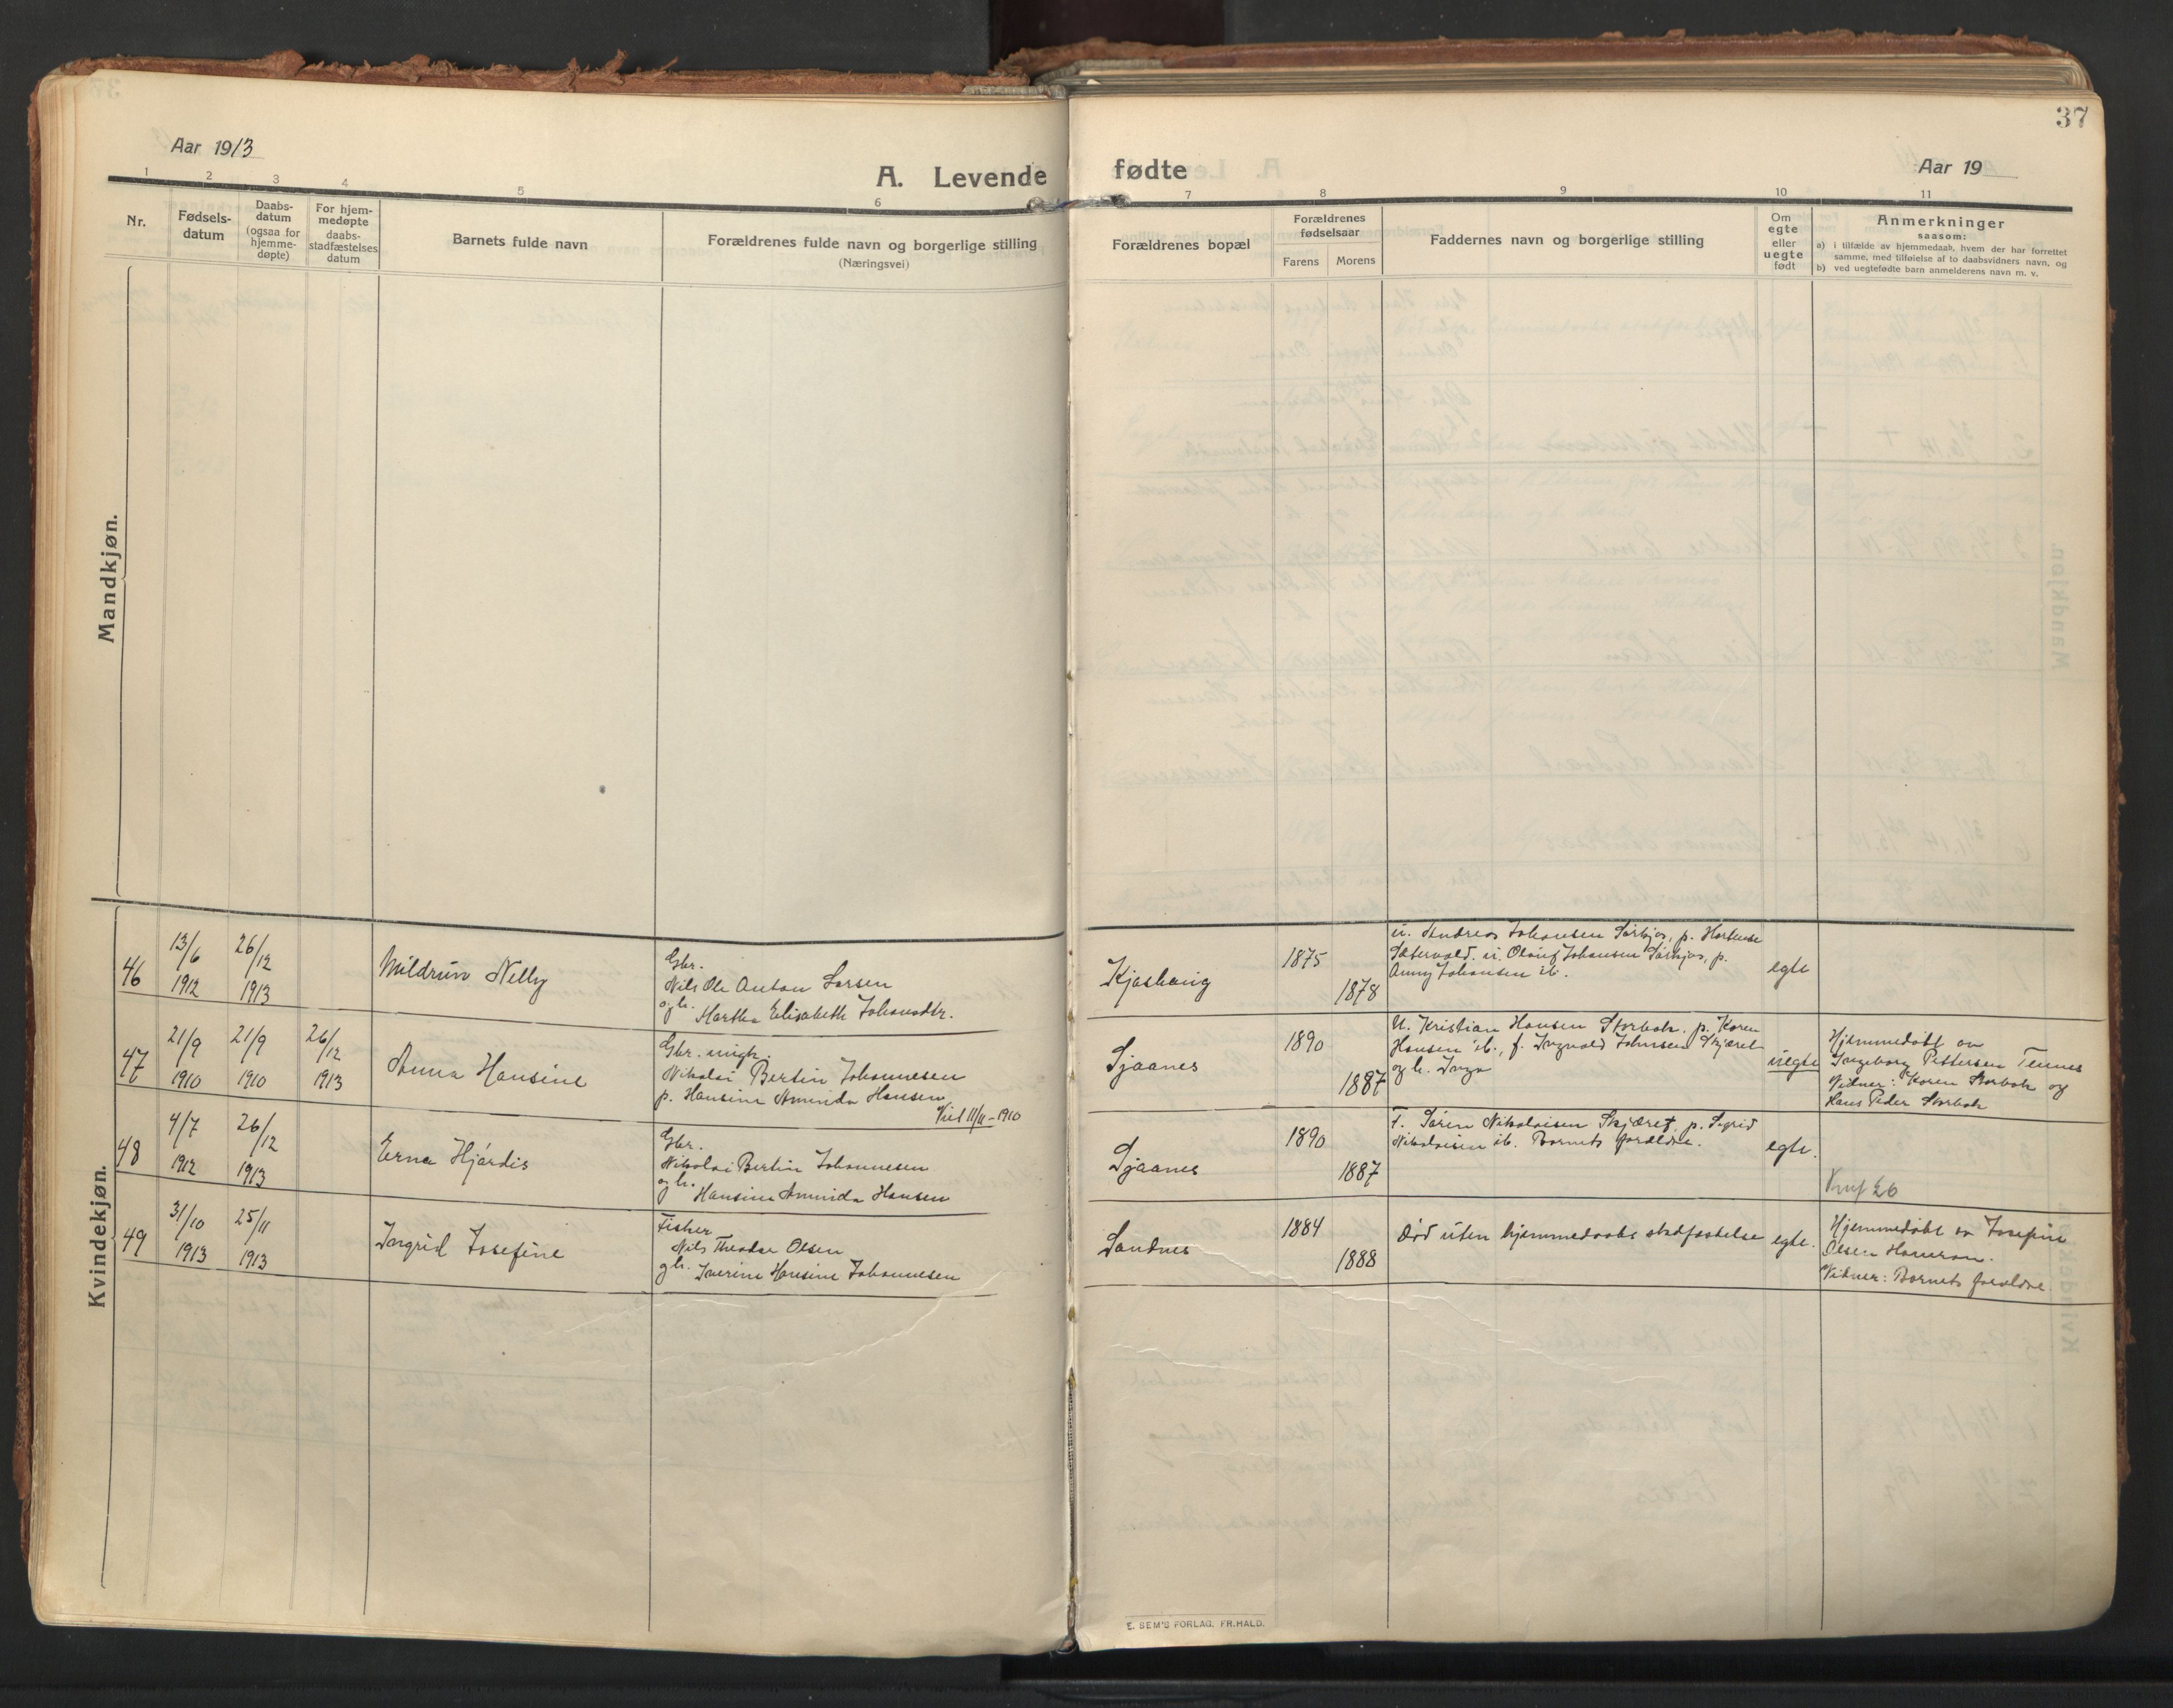 37
Aar 1913
A. Levende
fødte
Aar 19
1 2 3 4 5 6
7 8 9 10 11
Nr.
Fødsels-
datum
Daabs-
datum
(ogsaa for
hjemme-
døpte)
For hjem-
medøpte
daabs-
stadfæstelses
datum
Barnets fulde navn
Forældrenes fulde navn og borgerlige stilling
(Næringsvei)
Forældrenes bopæl
Forældrenes
fødselsaar
Farens Morens
Faddernes navn og borgerlige stilling
Om
egte
eller
uegte
født
Anmerkninger
saasom:
a) i tilfælde av hjemmedaab, hvem der har forrettet
samme, med tilføielse af to daabsvidners navn, og
b) ved uegtefødte barn anmelderens navn m. v.
Mandkjøn.
Kvindekjøn.
46
13/6
1912
26/12
1913
Mildrun Nelly
Gbr.
Nils Ole Anton Larsen
og h. Martha Elisabeth Johansdtr.
Kjoshaug
1875
1878
u. Andreas Johansen Sørkjos, p. Hortense
Sætervold. u. Oluuf Johansen Sørkjos, p.
Anny Johansen ib.
egte
47
21/9
1910
21/9
1910
26/12
1913
Anna Hansine
Gbr. ungk.
Nikolai Bertin Johannesen
p. Hansine Aminda Hansen
Viet 11/11-1910
Sjaanes
1890
1887
U. Kristian Hansen Storbak, p. Karen
Hansen ib., f. Ingvald Johnsen Skjæret
og h. Inga
uegte
Hjemmedøbt av
Ingeborg Pettersen Tennes
Vidner: Karen Storbak og
Hans Peder Storbak
48
4/7
1912
26/12
1913
Erna Hjørdis
Gbr.
Nikolai Bertin Johannesen
og h. Hansine Aminda Hansen
Sjaanes
1890
1887
F. Søren Nikolaisen Skjæret, p. Sigrid
Nikolaisen ib. Barnets forældre.
egte.
49
31/10
1913
25/11
1913
Ingrid Josefine
Fisker
Nils Theodor Olsen
og h. Iverine Hansine Johannesen
Sandnes
1884
1888
Død uten hjemmedaabs stadfæstelse
egte.
Hjemmedøbt av Josefine
Olsen
Vidner: Barnets forældre.
E. SEM'S FORLAG, FR.HALD.